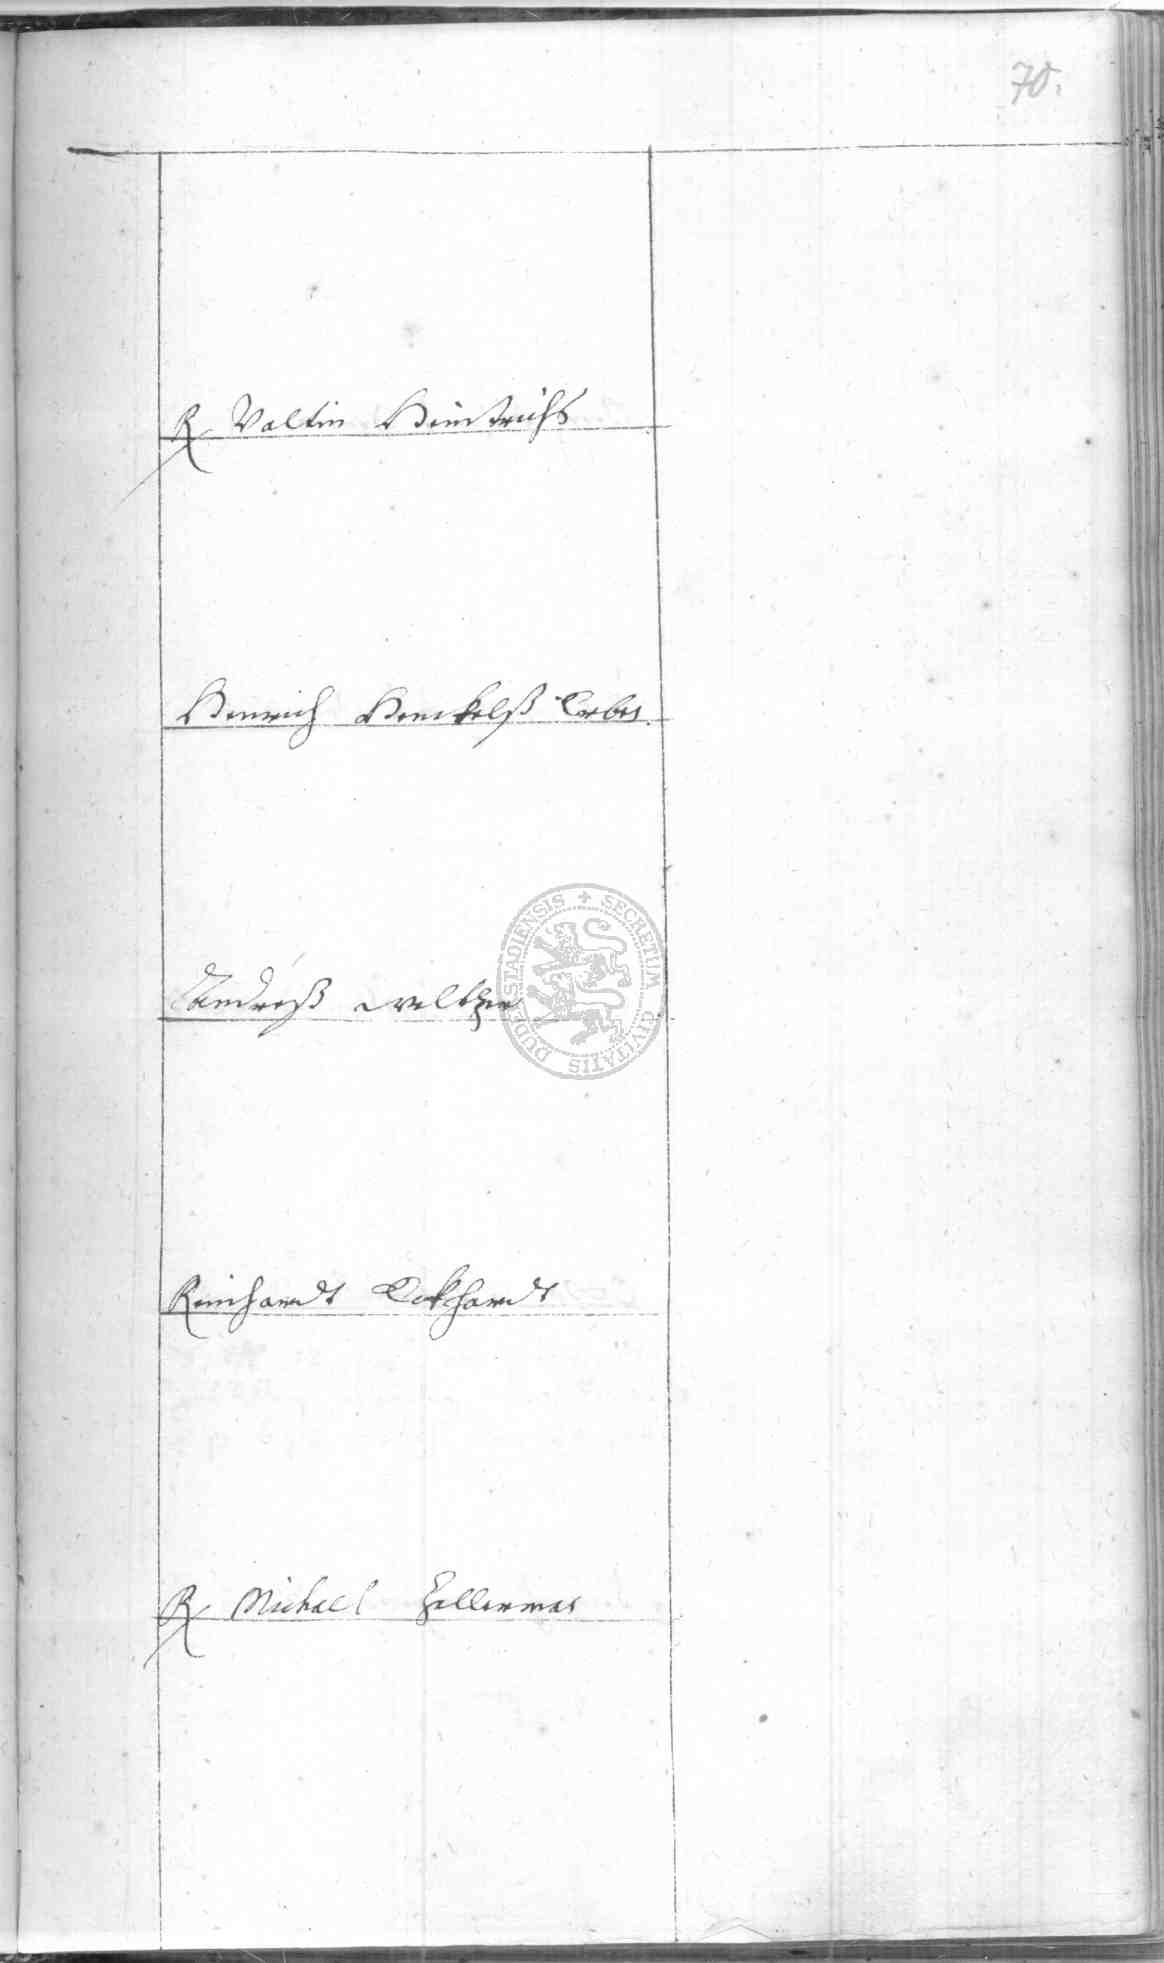 70.
R Valtin Hindrichs
Henrich Henckelß Erben
Andreß Welther
Reinhardt Eckhardt
R Michael Hellerman
SECRETUM CIVITATIS DUDERSTADIENSIS